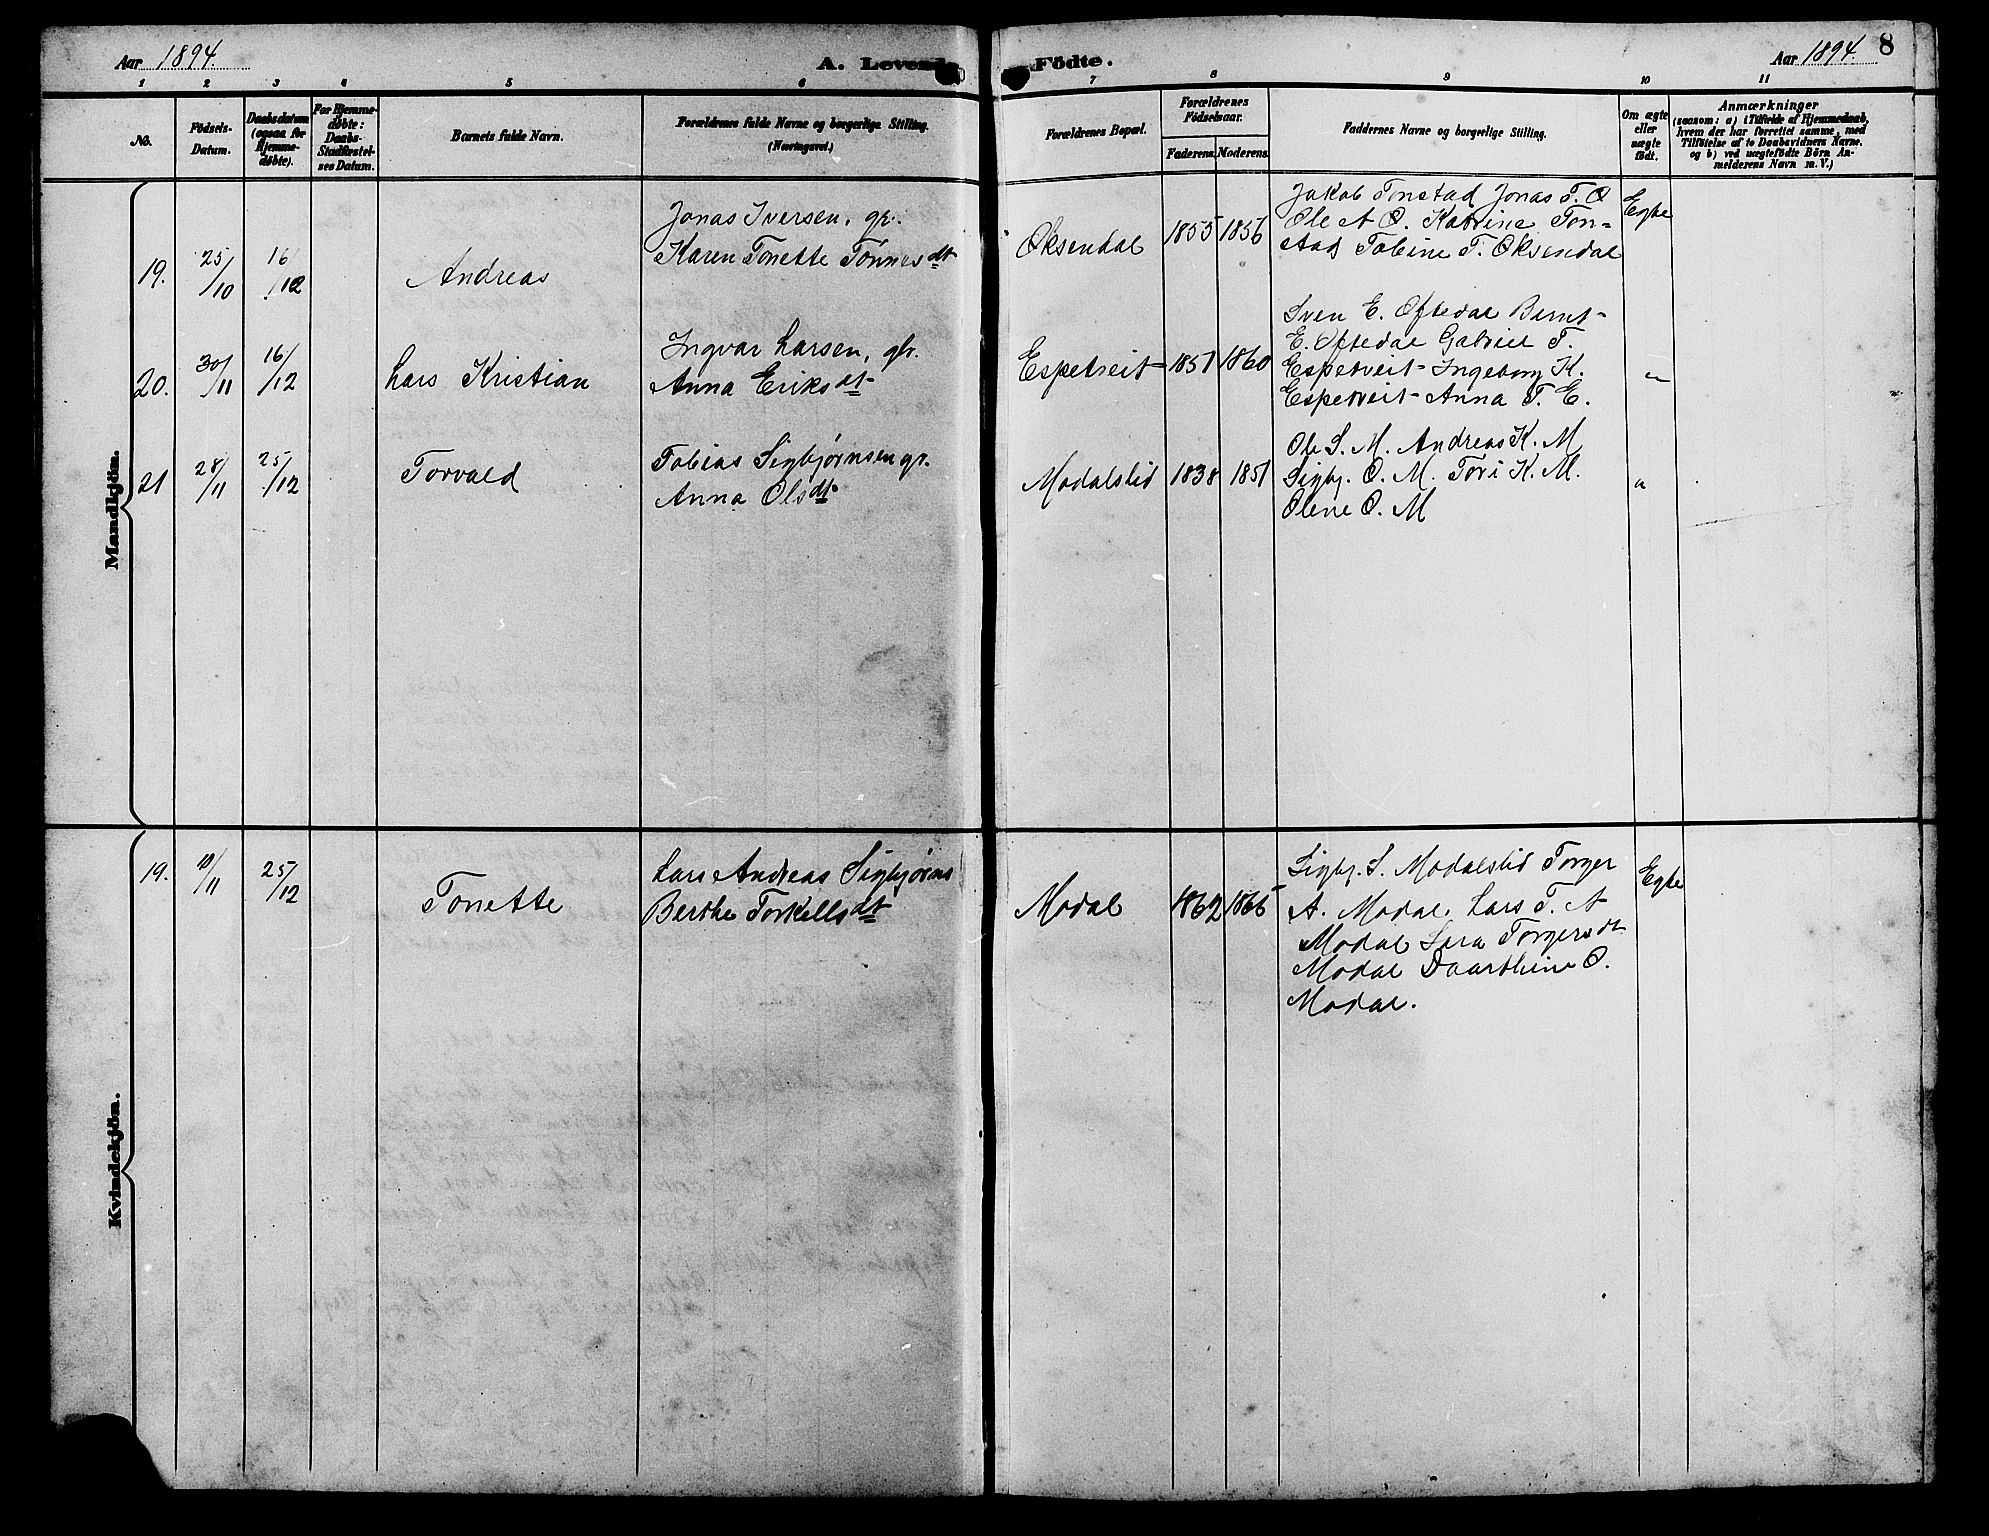 Aar 1894.
A. Levend
Födte.
Aar 1894.
8
1 2 3 4 5 6 7 8 9 10 11
No.
Födsels-
Datum.
Daabsdatum
(ogsaa for
Hjemme-
døbte).
For Hjemme-
døbte:
Daabs-
Stadfæstel-
ses Datum.
Barnets fulde Navn.
Forældrenes fulde Navne og borgerlige Stilling.
(Næringsvei.)
Forældrenes Bopæl.
Forældrenes
Födselsaar.
Faderens. Moderens.
Faddernes Navne og borgerlige Stilling.
Om ægte
eller
uægte
födt.
Anmærkninger
(saasom: a) i Tilfælde af Hjemmedaab,
hvem der har forrettet samme, med
Tilføielse af to Daabsvidners Navne.
og b) ved uægtefödte Börn An-
melderens Navn m. V.)
Mandkjön.
19. 25/10 16/12 Andreas
Jonas Iversen, gr.
Karen Tonette Tönnesdt
Oksendal 1855 1856
Jakob Tonstad Jonas T. O
Ole A O. Katrine Ton-
stad Tobine T. Oksendal
Egte
20. 30/11 16/12 Lars Kristian
Ingvar Larsen, gr.
Anna Eriksdt
Espetveit 1857 1860
Sven E. Oftedal Bernt
E. Oftedal Gabriel T.
Espetveit Ingeborg K.
Espetveit Anna T. E.
"
21 28/11 25/12 Torvald
Tobias Sigbjørnsen gr.
Anna Olsdt
Modalslid 1838 1851
Ole S. M. Andreas K. M
Sigbj. O. M. Tori K. M.
Olene O. M
"
Kvindekjön.
19. 10/11 25/12 Tonette
Lars Andreas Sigbjørns
Berthe Torkellsdt
Modal 1862 1865
Sigbj. S. Modalslid Torger
A. Modal. Lars T. A
Modal Sara Torgersdt
Modal Daarthine O.
Modal.
Egte